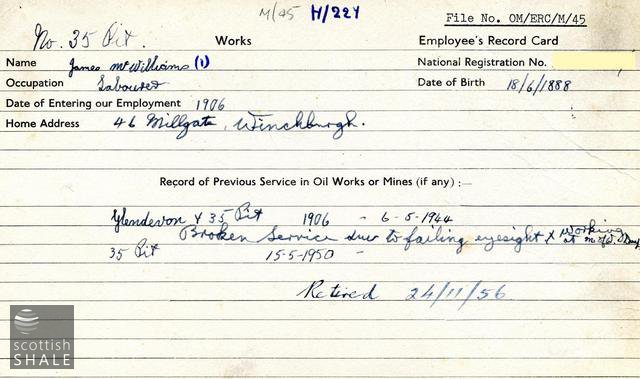 M/45 H/224 File No. OM/ERC/M/45
No. 35 Pit. Works Employee's Record Card
Name James McWilliams (1) National Registration No.
Occupation Labourer Date of Birth 18/6/1888
Date of Entering our Employment 1906
Home Address 46 Millgate, Winchburgh.
Record of Previous Service in Oil Works or Mines (if any) :—
Glendevon & 35 Pit 1906 - 6-5-1944
Broken Service due to failing eyesight & working
at
35 Pit 15-5-1950 -
Retired 24/11/56
scottish
SHALE